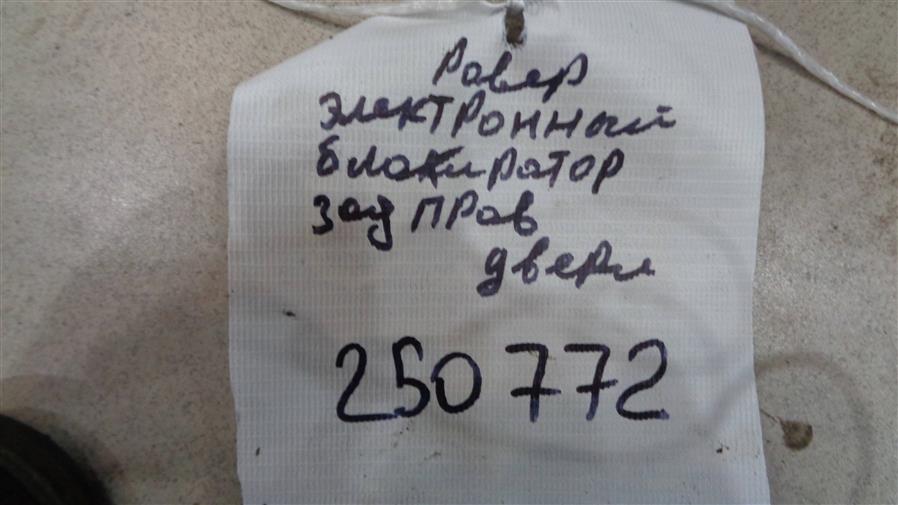 Ровер
электронный
блокиратор
зад прав
двери
250 772